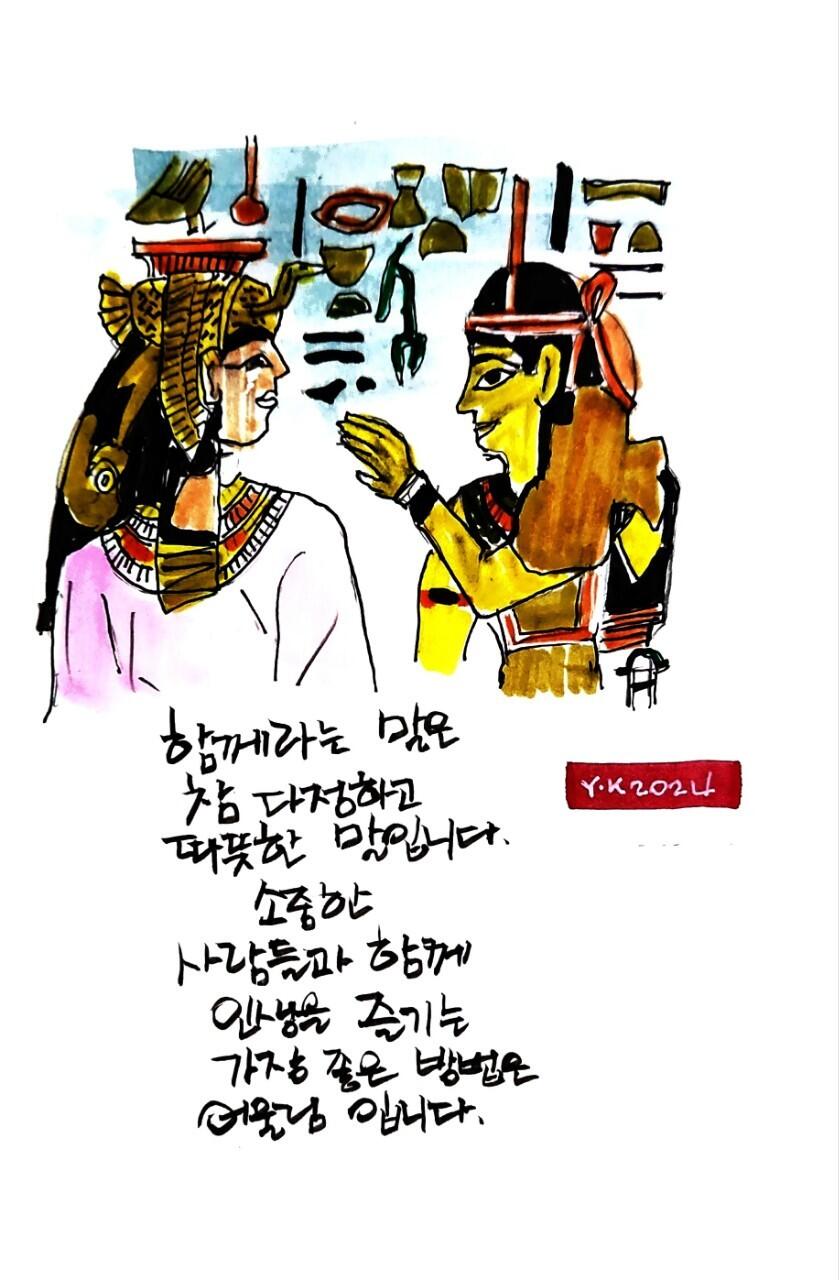 함께라는 말은
참 다정하고
따뜻한 말입니다.
Y.K 2024
소중한
사람들과 함께
인생을 즐기는
가장 좋은 방법은
어울림 입니다.